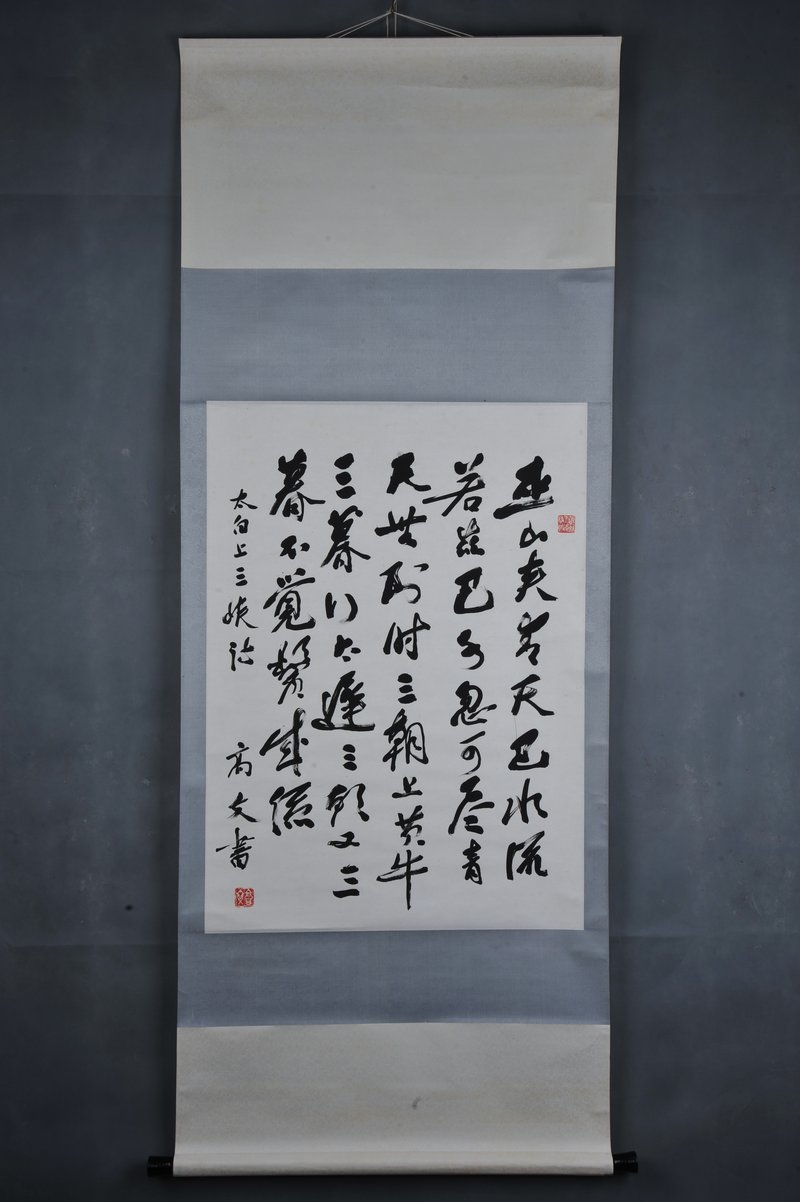 巫山夾青天巴水流
若兹巴水忽可尽青
天無到时三朝上黄牛
三暮行太遲三朝又三
暮不覺鬢成絲
太白上三峡詩 高文書